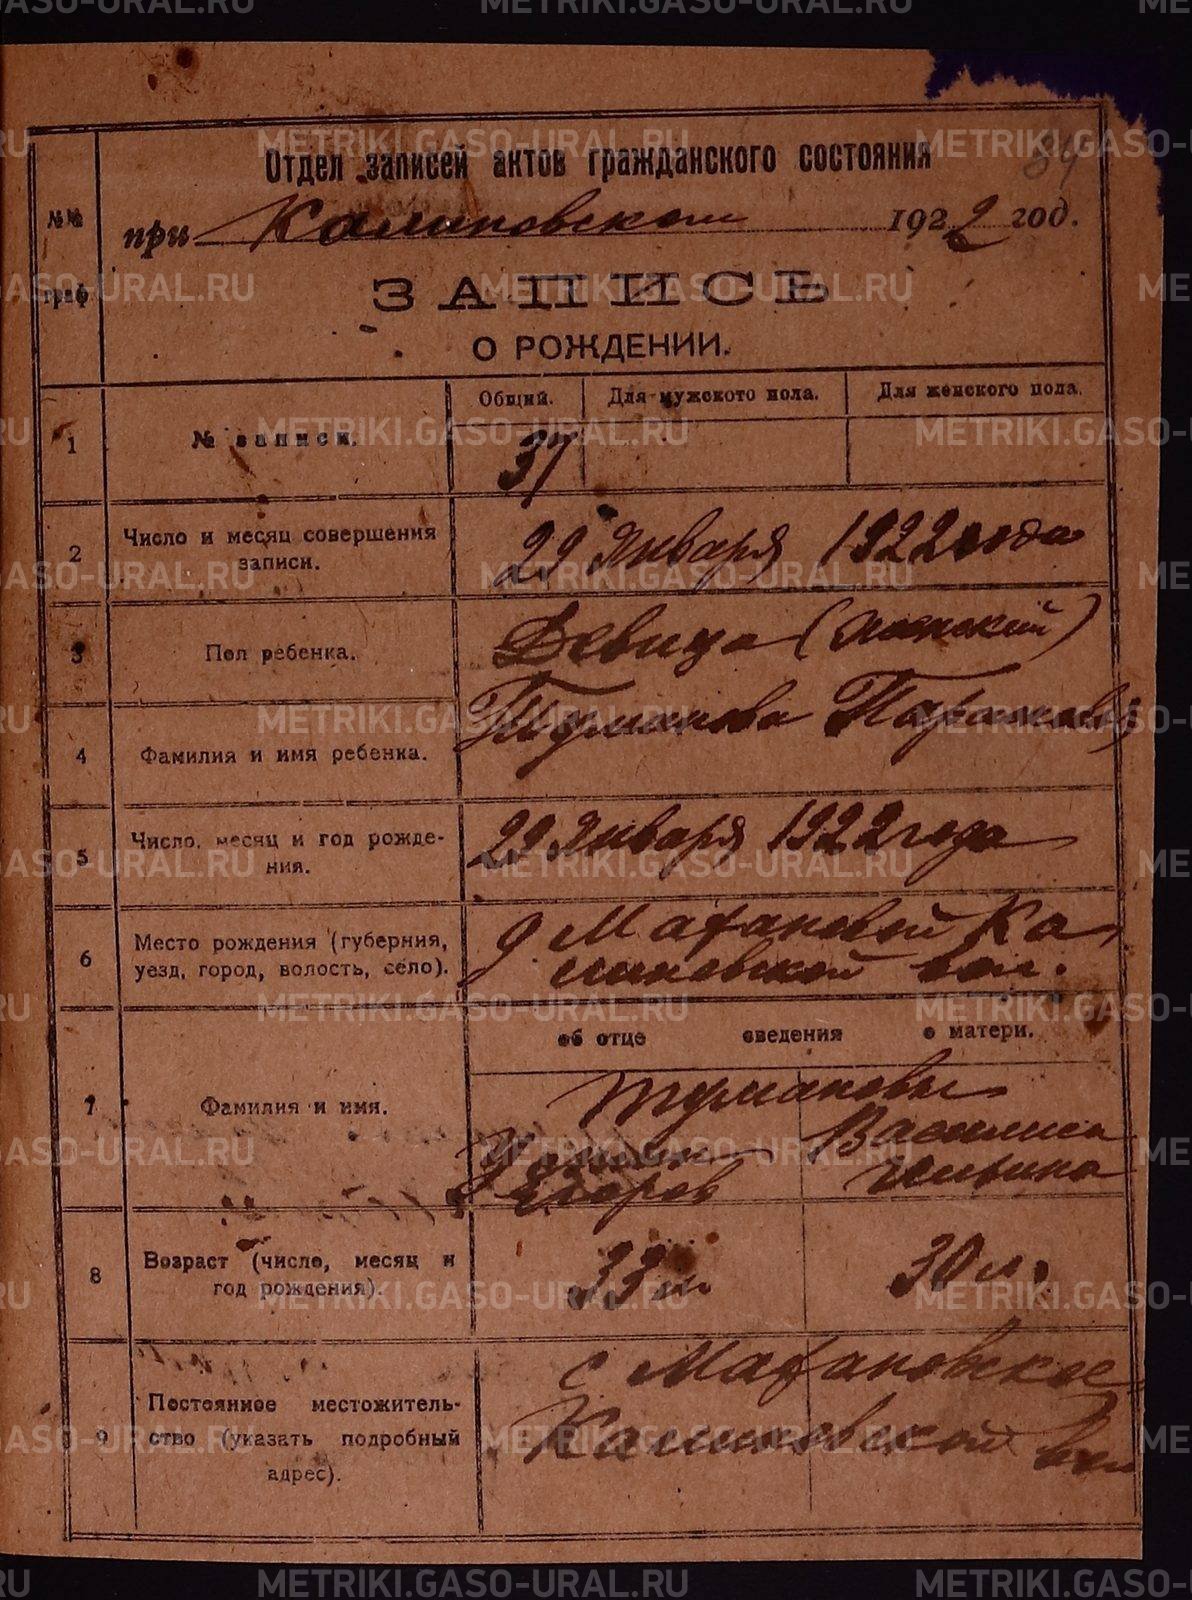 METRIKI.GASO-URAL.RU
Отдел записей актов гражданского состояния
84
№№ граф.
при Калиновском 1922 год.
ЗАПИСЬ
О РОЖДЕНИИ.
Общий. Для мужского пола. Для женского пола.
1 № записи. 37
2 Число и месяц совершения записи. 29 Января 1922 года
3 Пол ребенка. Девица (женский)
4 Фамилия и имя ребенка. Тумакова Парасковья
5 Число, месяц и год рожде-
ния. 29 Января 1922 года
6 Место рождения (губерния,
уезд, город, волость, село). Д Матановой Ка
линовской вол.
об отце сведения о матери.
7 Фамилия и имя. Тумаковы
Егоров
Василиса
Ильина
8 Возраст (число, месяц и
год рождения). 33 л. 30 л.
9 Постоянное местожитель-
ство (указать подробный
адрес). с Матановское
Калиновской вол